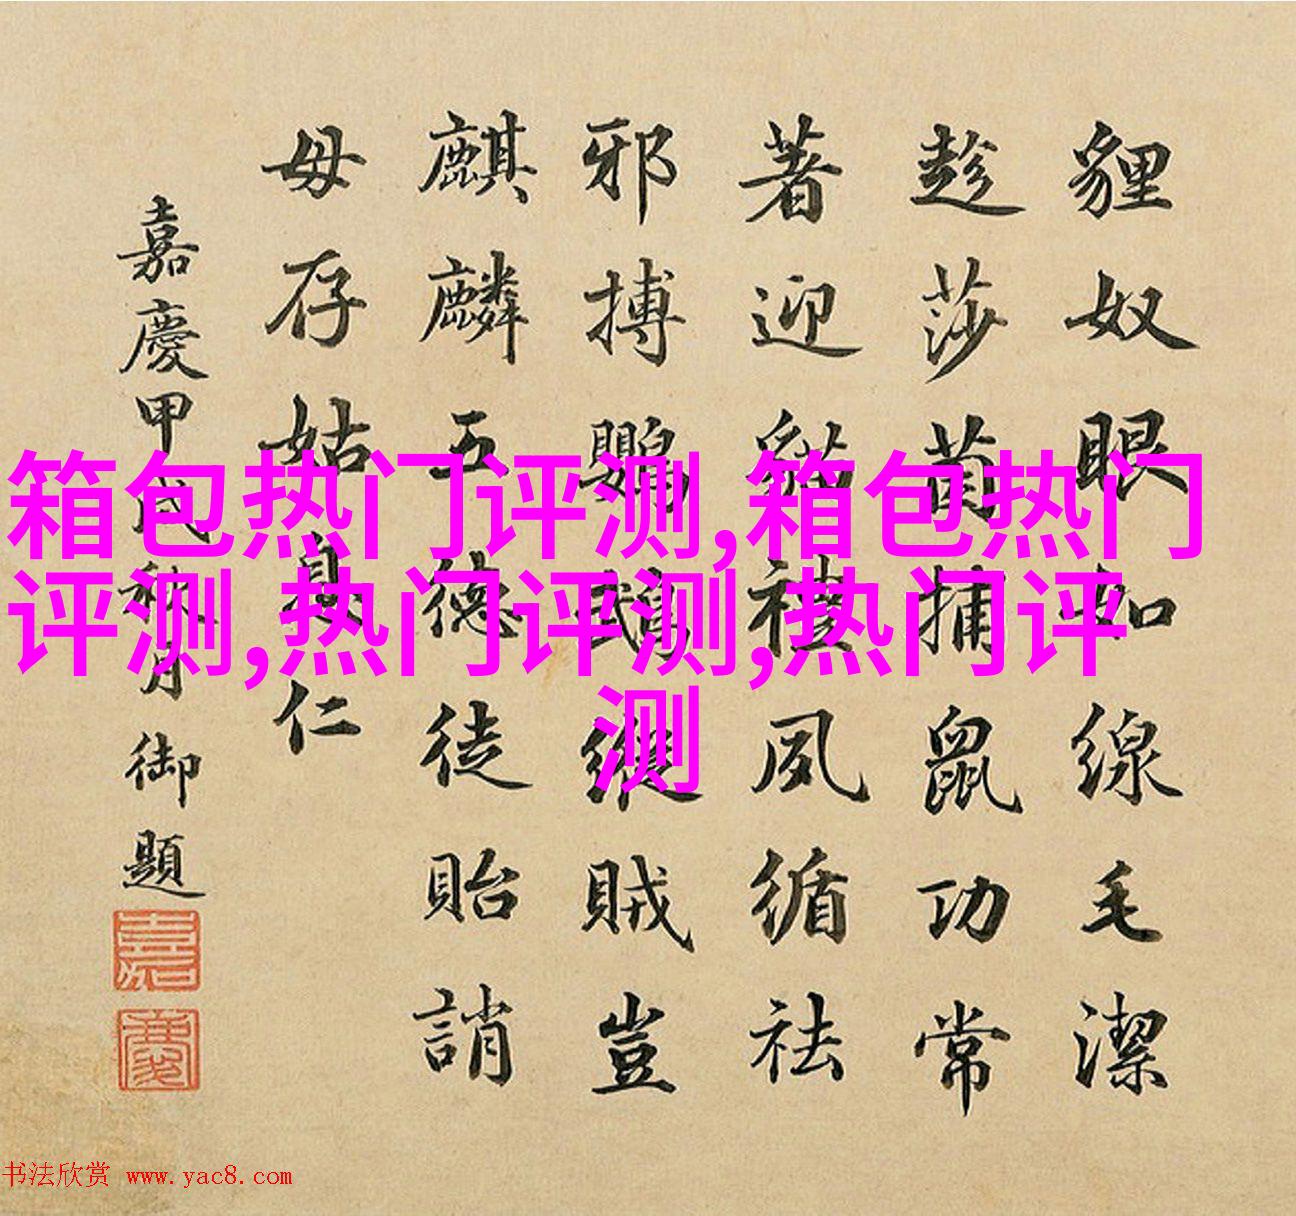 貍奴眼如線毛潔
趁莎茵捕鼠功常
著迎貓禮夙循祛
邪搏鸚鵡縱賊豈
麒麟五德徒貽誚
毋存姑息仁
嘉慶甲戌秋月御題
嘉
慶
箱包热门评测,箱包热门
评测,热门评测,热门评
测
书法欣赏 www.yac8.com